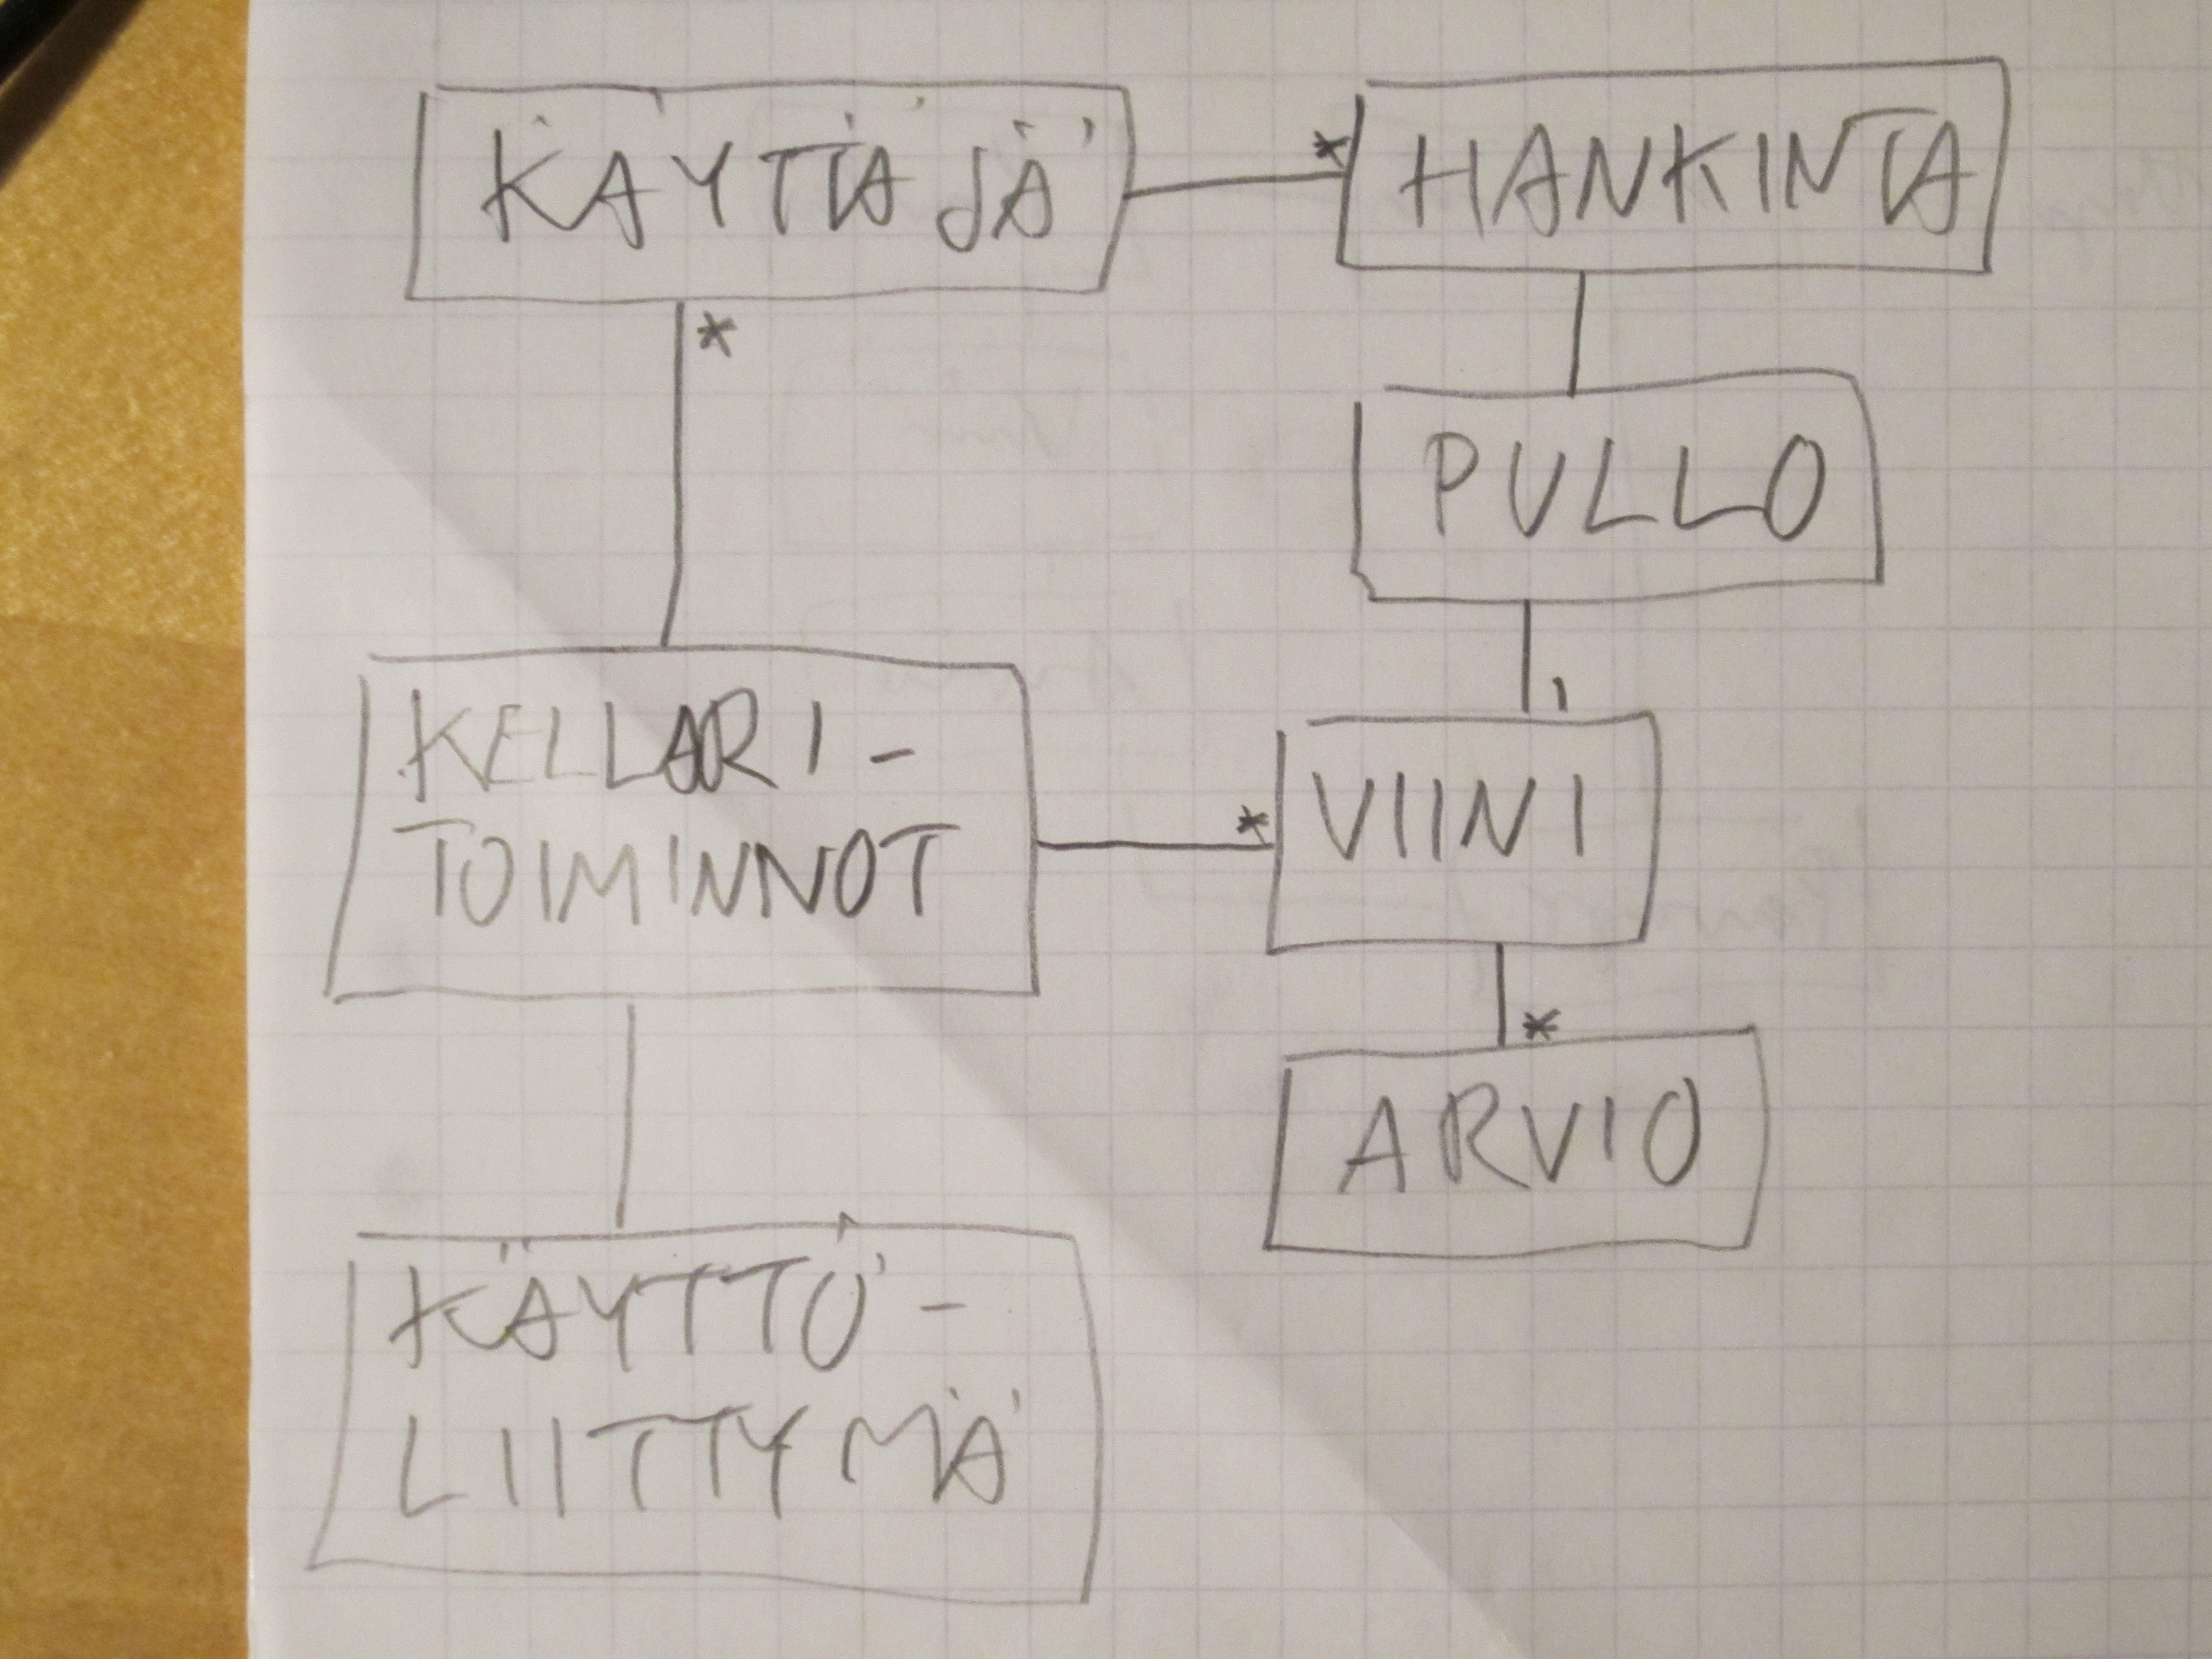 KÄYTTÄJÄ
*
HANKINTA
*
PULLO
KELLARI-
TOIMINNOT
1
*
VIINI
*
ARVIO
KÄYTTÖ-
LIITTYMÄ